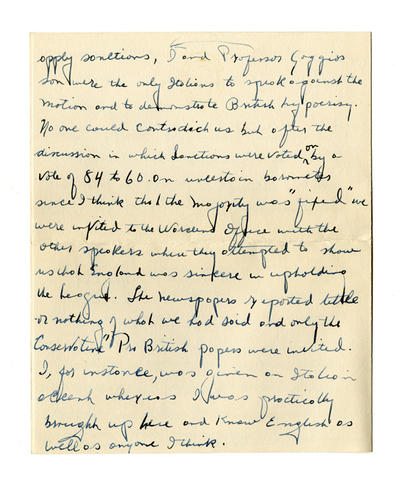 apply sanctions, I and Professor Goggios
son were the only Italians to speak against the
motion and to demonstrate British hypocrisy.
No one could contradict us but after the
discussion in which sanctions were voted on by a
vote of 84 to 60. an uncertain barometer
since I think that the majority was "fixed" we
were invited to the Wardens Office with the
other speakers where they attempted to show
us that England was sincere in upholding
the League. The newspapers reported little
or nothing of what we had said and only the
Conservative" Pro British papers were invited.
I, for instance, was given an Italian
accent whereas I was practically
brought up here and know English as
well as anyone I think.